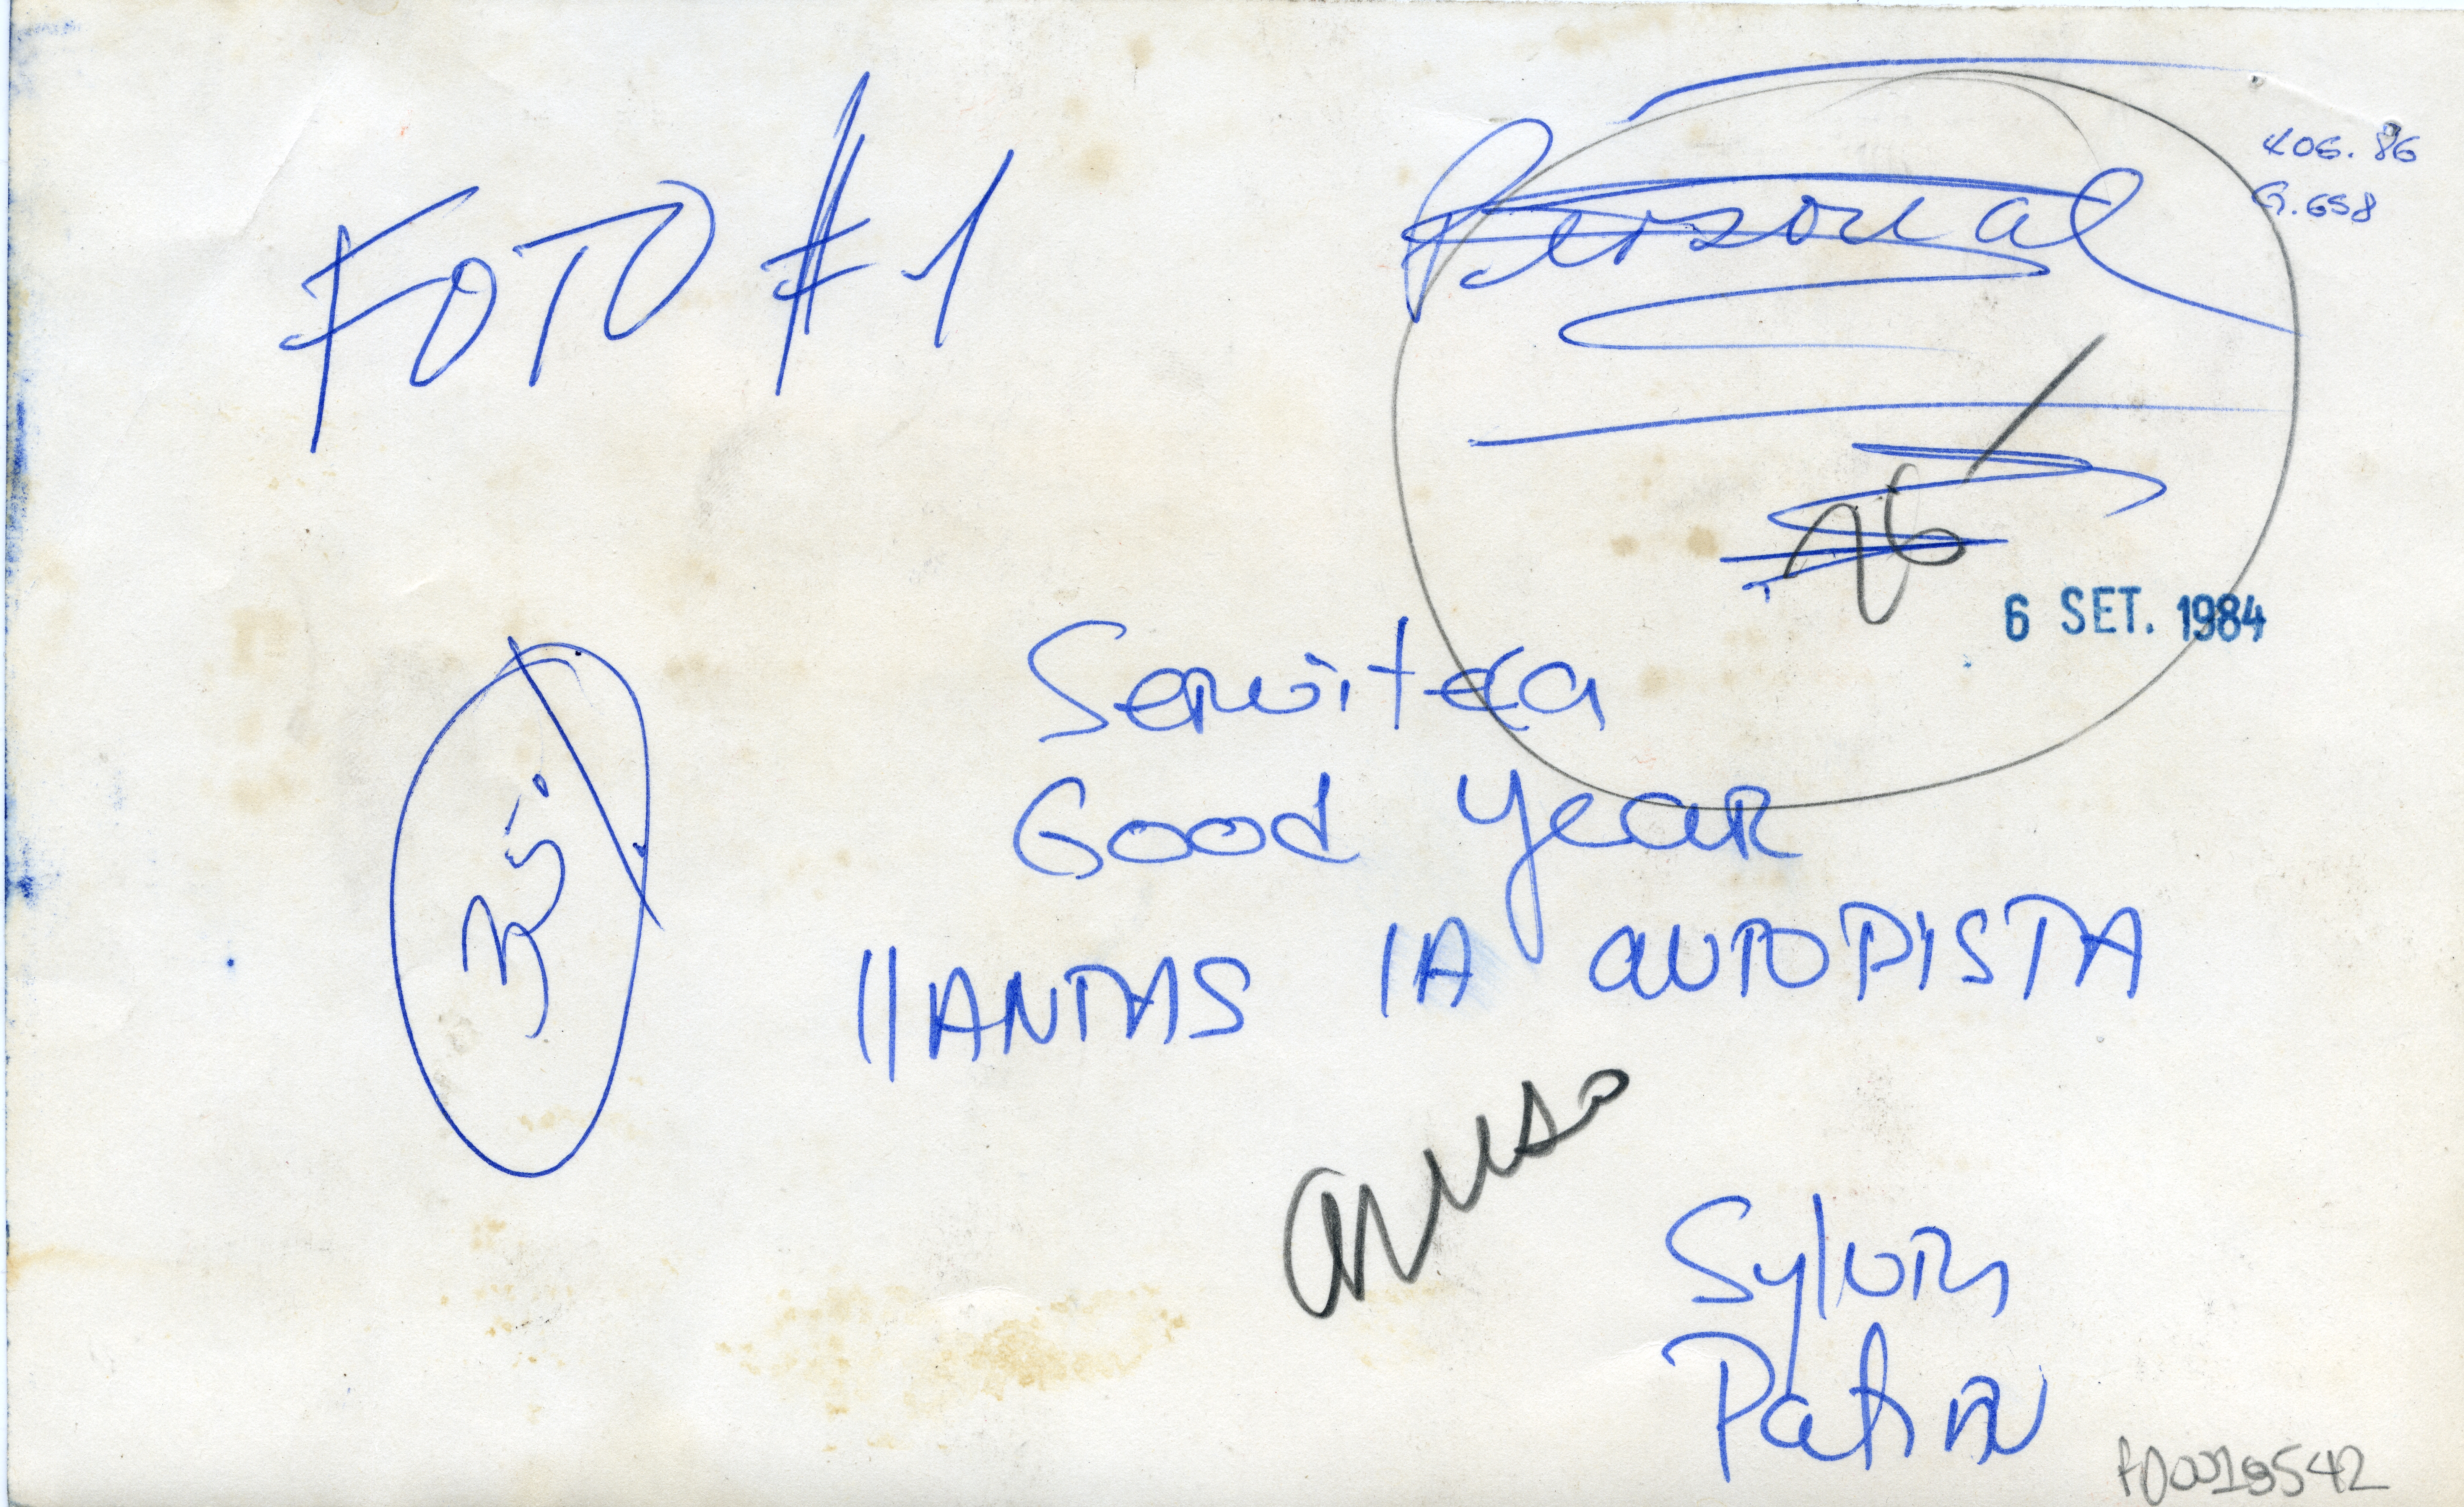 FOTO #1
Personal
406.86
G.658
6 SET. 1984
Serviteca
Good Year
35
llANTAS lA AUTOPISTA
Sylvia
Patiño